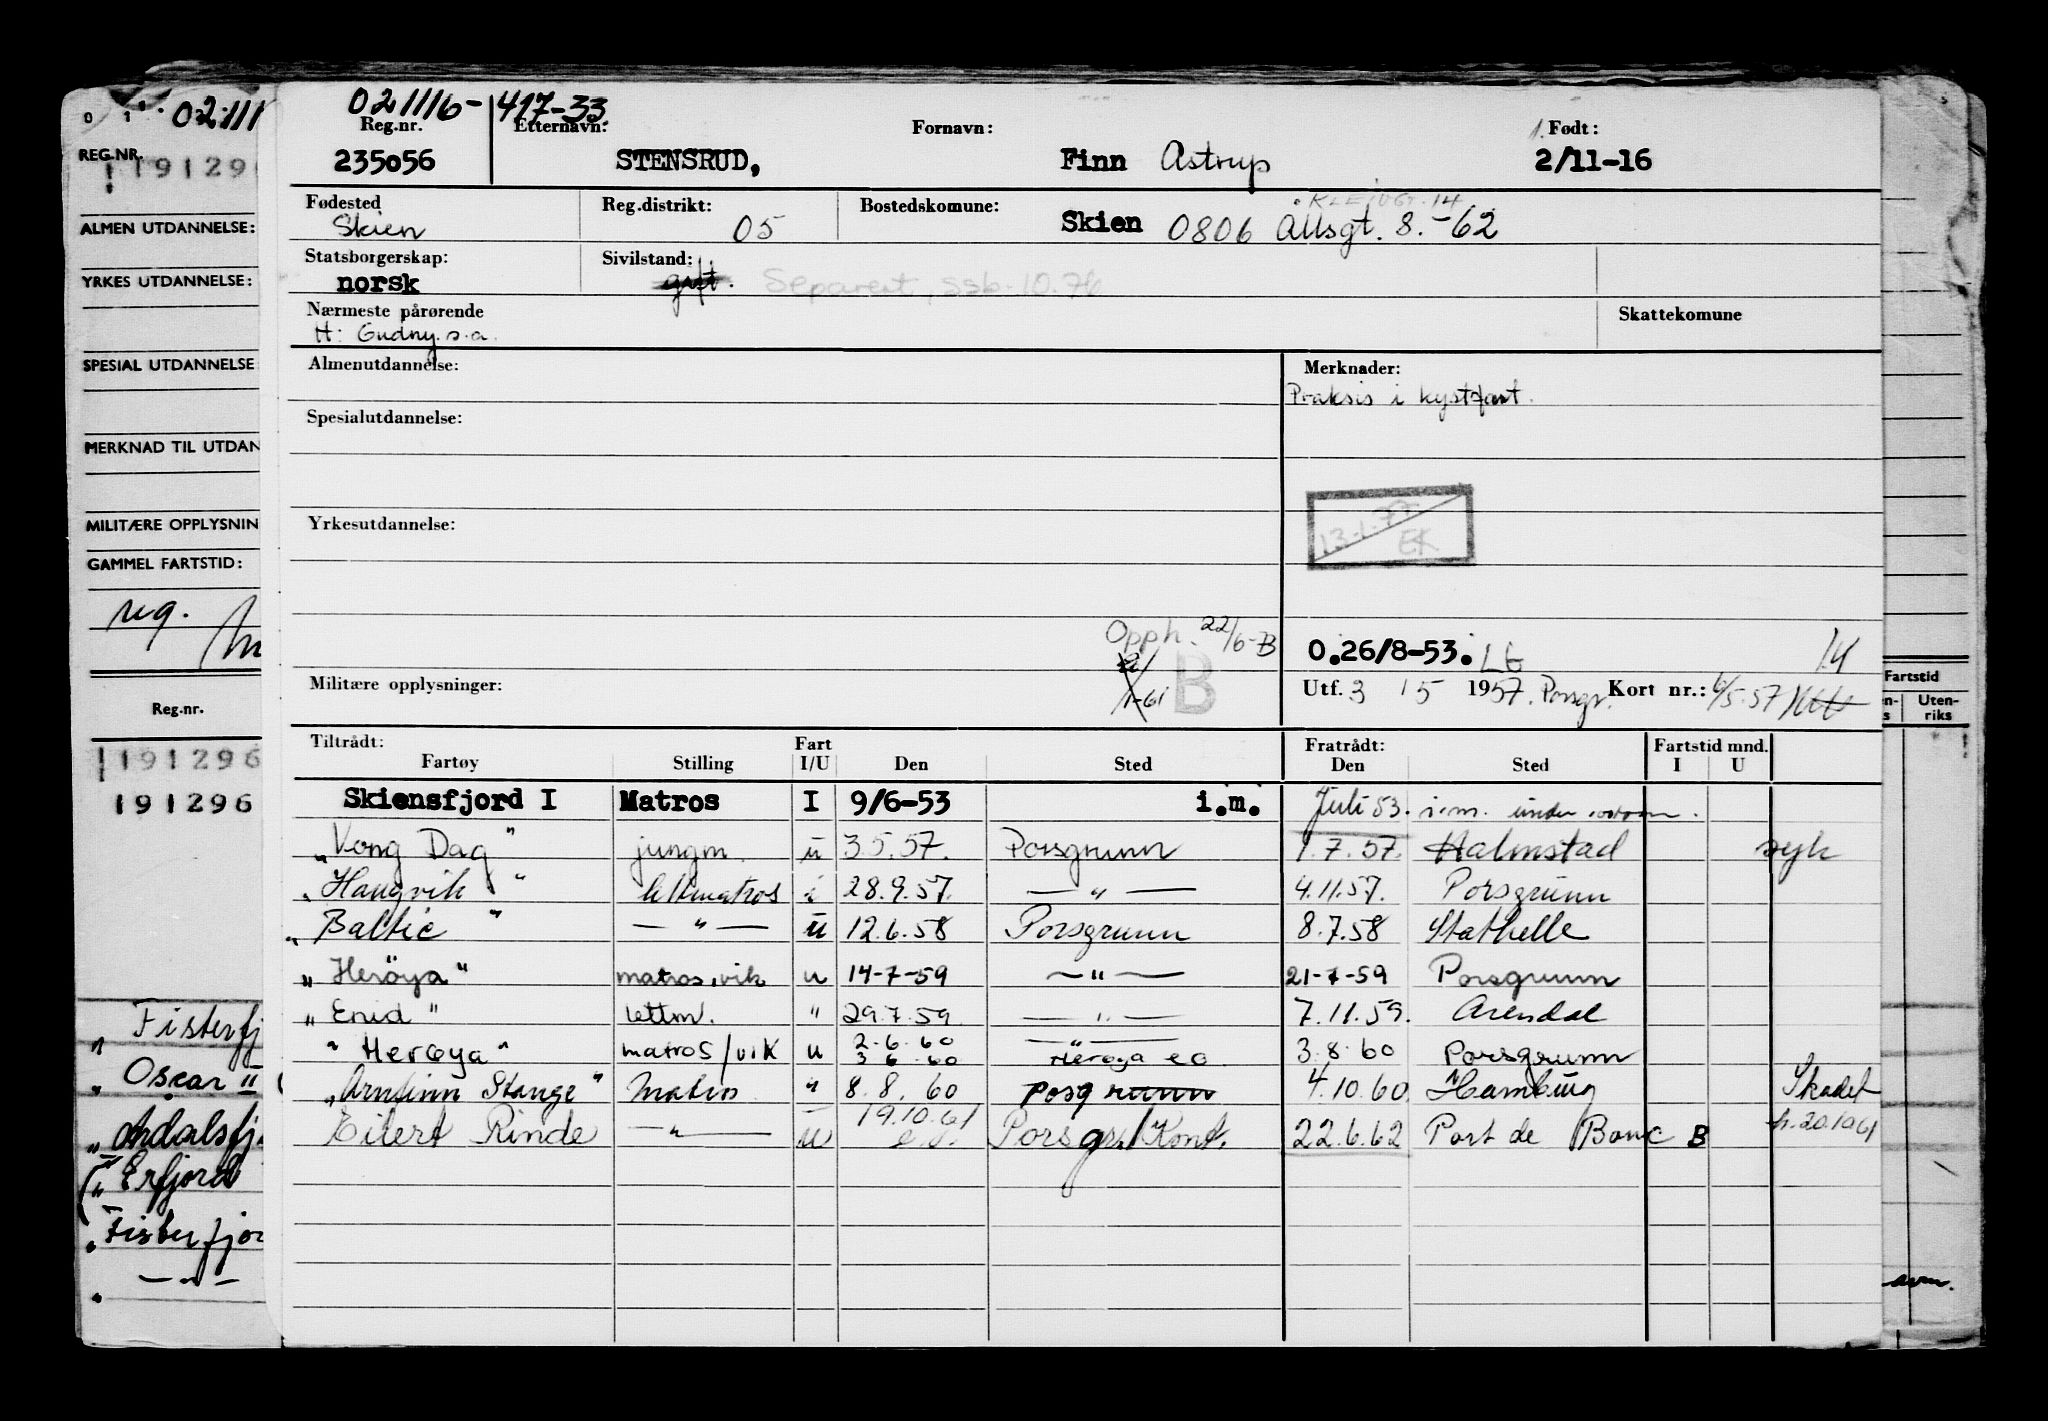 021116- 417-33
Reg.nr. Etternavn: Fornavn: 1. Født:
235056 STENSRUD, Finn Astrup 2/11-16
Fødested Reg.distrikt: Bostedskomune:
Skien 05 Skien 0806 Allsgt. 8.-62
Statsborgerskap: Sivilstand:
norsk gift. Separert, ssb. 10.76
Nærmeste pårørende Skattekomune
H: Gudny. s.a.
Almenutdannelse: Merknader:
Praksis i kystfart.
Spesialutdannelse:
13-1.77 EK
Yrkesutdannelse:
Opph. 22/6-B
B
0.26/8-53. 14
Militære opplysninger: Utf. 3 / 5 1957. Porsgr. Kort nr.: 6/5.57
Tiltrådt: Fart Fratrådt: Fartstid mnd.
Fartøy Stilling I/U Den Sted Den Sted I U
Skiensfjord I Matros I 9/6-53 i.m. Juli 53. i.m. under
"Kong Dag" jungm. u 3.5.57. Porsgrunn 1.7.57. Halmstad syk
"Haugvik" lettmatros i 28.9.57. — " — 4.11.57. Porsgrunn
"Baltic" — " — u 12.6.58 Porsgrunn 8.7.58 Stathelle
"Herøya" matros.vik u 14-7-59 — " — 21-7-59 Porsgrunn
"Enid" lettm. " 29.7.59 — " — 7.11.59. Arendal
"Herøya" matros/vik u 2-6-60 — " — 3.8.60 Porsgrunn
3 6 60 Herøya
"Arnfinn Stange" Matros " 8.8.60 Posgrunn 4.10.60 "Hamburg Skadet
Eilert Rinde — " — u 19.10.61 Porsgr./Kont. 22.6.62 Port de Bouc B
REG.NR. 02111
191296
ALMEN UTDANNELSE:
YRKES UTDANNELSE:
SPESIAL UTDANNELSE
MERKNAD TIL UTDAN
MILITÆRE OPPLYSNIN
GAMMEL FARTSTID:
reg.
Reg.nr.
191296
191296
Fisterfj
" Oscar II
" Årdalsfj
(" Erfjord
" Fisterfjor
" — " —
Fartstid
Uten-
riks